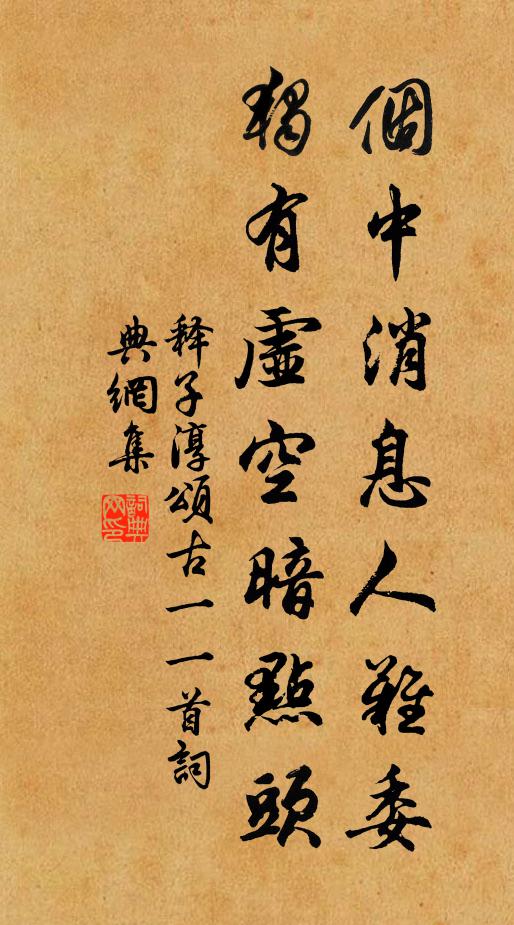 個中消息人難委
獨有虛空暗點頭
释子淳頌古一一首詞
典網集
詞典網印